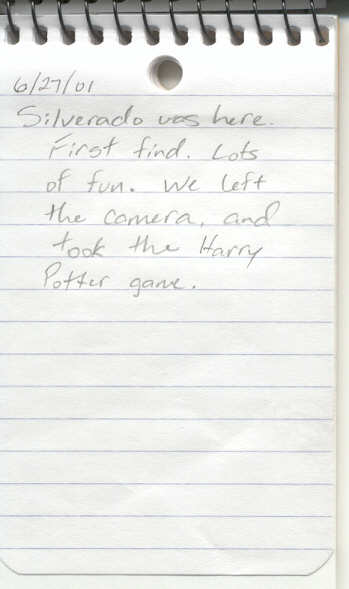 6/27/01
Silverado was here.
First find. Lots
of fun. We left
the camera, and
took the Harry
Potter game.